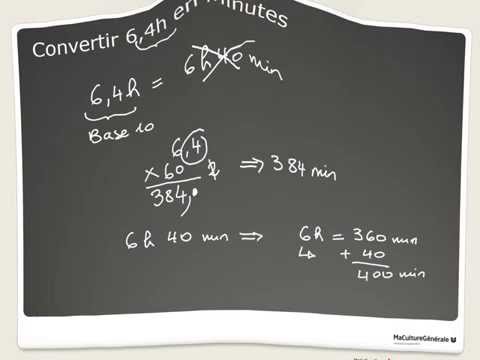 Convertir 6,4h en Minutes
6,4h = 6h40 min
Base 10
6,4
×60
384, ⇒ 384 min
6h 40 min ⇒ 6h = 360 min
+ 40
400 min
MaCultureGénérale